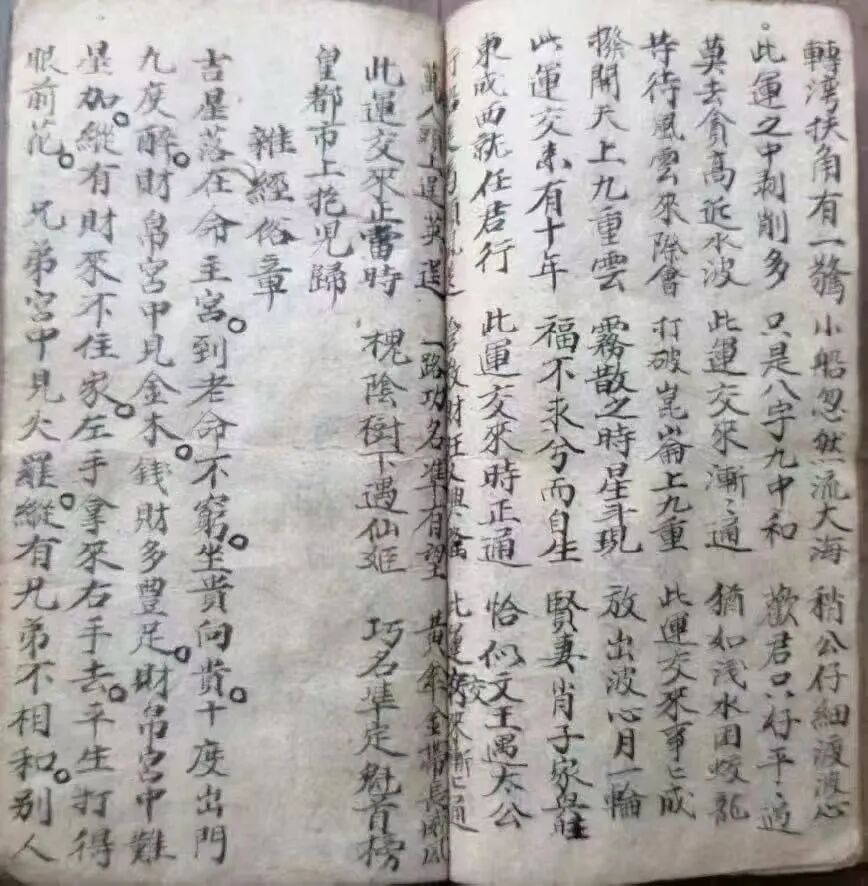 轉湾扶角有一驚 小船忽然流大海 稍公仔細渡波心
此運之中剥削多 只是八字九中和 歡君只仔平〻過
莫去貪高近水波 此運交來漸〻通 猶如浅水困蛟龍
等待風雲來際會 打破崑崙上九重 此運交來事〻成
撥開天上九重雲 霧散之時星斗現 放出波心月一輪
此運交來有十年 福不求兮而自生 賢妻肖子家
東成西就任君行 此運交來時正通 恰似文王遇太公
財旺 此運交來漸〻通
萬人頭上逞英 一路功名準有望 黄 金 長
此運交來正當時 槐陰樹下遇仙姬 巧名準定魁首榜
皇都市上抱児歸
雜經俗章
吉星落在命主宮。到老命不窮。坐貴向貴。十度出門
九度醉。財帛宮中見金木。錢財多豊足。財帛宮中難
星加。縱有財來不住家。左手拿來右手去。平生打得
眼前花。兄弟宮中見火羅。縱有兄弟不相和。别人